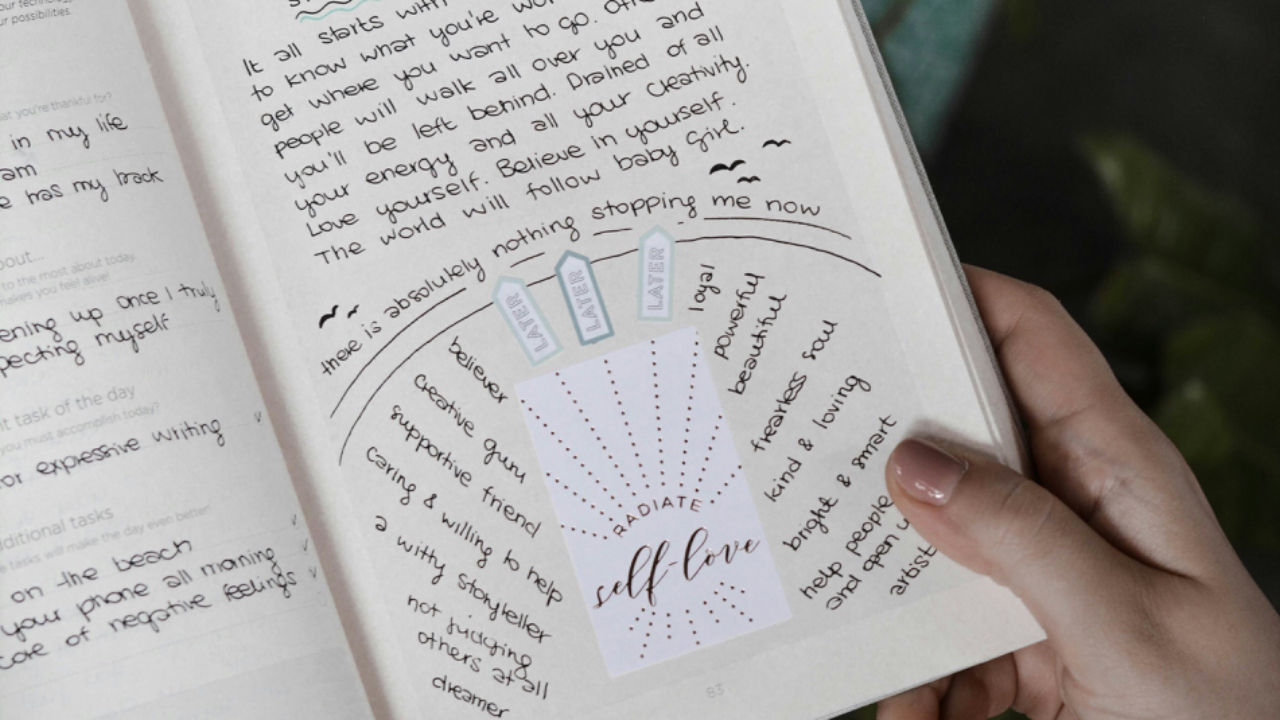 your possibilities.
you're thankful for?
in my life
am
has my back
to the most about today.
makes you feel alive!
ening up once I truly
pecting myself
task of the day
you must accomplish today?
or expressive writing
additional tasks
tasks will make the day even better!
on the beach
your phone all morning
of negative feelings
It all starts with
to know what you're
get where you want to go.
people will walk all over you and
you'll be left behind. Drained of all
your energy and all your creativity.
Love yourself. Believe in yourself.
The world will follow baby girl.
there is absolutely nothing stopping me now
LATER
LATER
LATER
believer
creative guru
supportive friend
caring & willing to help
a witty storyteller
not judging
others at all
dreamer
RADIATE
self-love
loyal
powerful
beautiful
fearless soul
kind & loving
bright & smart
help people
and open
artist
83